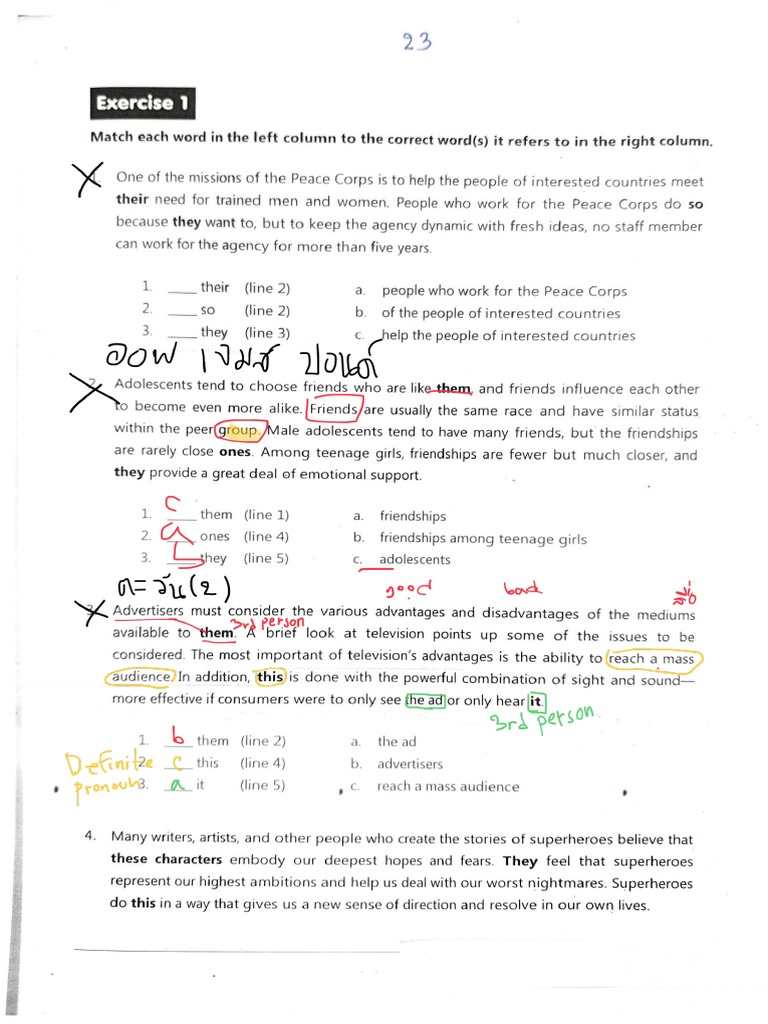 23
Exercise 1
Match each word in the left column to the correct word(s) it refers to in the right column.
One of the missions of the Peace Corps is to help the people of interested countries meet
their need for trained men and women. People who work for the Peace Corps do so
because they want to, but to keep the agency dynamic with fresh ideas, no staff member
can work for the agency for more than five years.
1. ____ their (line 2) a. people who work for the Peace Corps
2. ____ so (line 2) b. of the people of interested countries
3. ____ they (line 3) c. help the people of interested countries
ออฟ เจมส์ ปอนด์
2. Adolescents tend to choose friends who are like them, and friends influence each other
to become even more alike. Friends are usually the same race and have similar status
within the peer group. Male adolescents tend to have many friends, but the friendships
are rarely close ones. Among teenage girls, friendships are fewer but much closer, and
they provide a great deal of emotional support.
1. c them (line 1) a. friendships
2. a ones (line 4) b. friendships among teenage girls
3. b they (line 5) c. adolescents
ตะวัน(2)
good bad สื่อ
3. Advertisers must consider the various advantages and disadvantages of the mediums
3rd person
available to them. A brief look at television points up some of the issues to be
considered. The most important of television's advantages is the ability to reach a mass
audience. In addition, this is done with the powerful combination of sight and sound—
more effective if consumers were to only see the ad or only hear it.
3rd person
1. b them (line 2) a. the ad
Definite 2. c this (line 4) b. advertisers
pronoun 3. a it (line 5) c. reach a mass audience
4. Many writers, artists, and other people who create the stories of superheroes believe that
these characters embody our deepest hopes and fears. They feel that superheroes
represent our highest ambitions and help us deal with our worst nightmares. Superheroes
do this in a way that gives us a new sense of direction and resolve in our own lives.